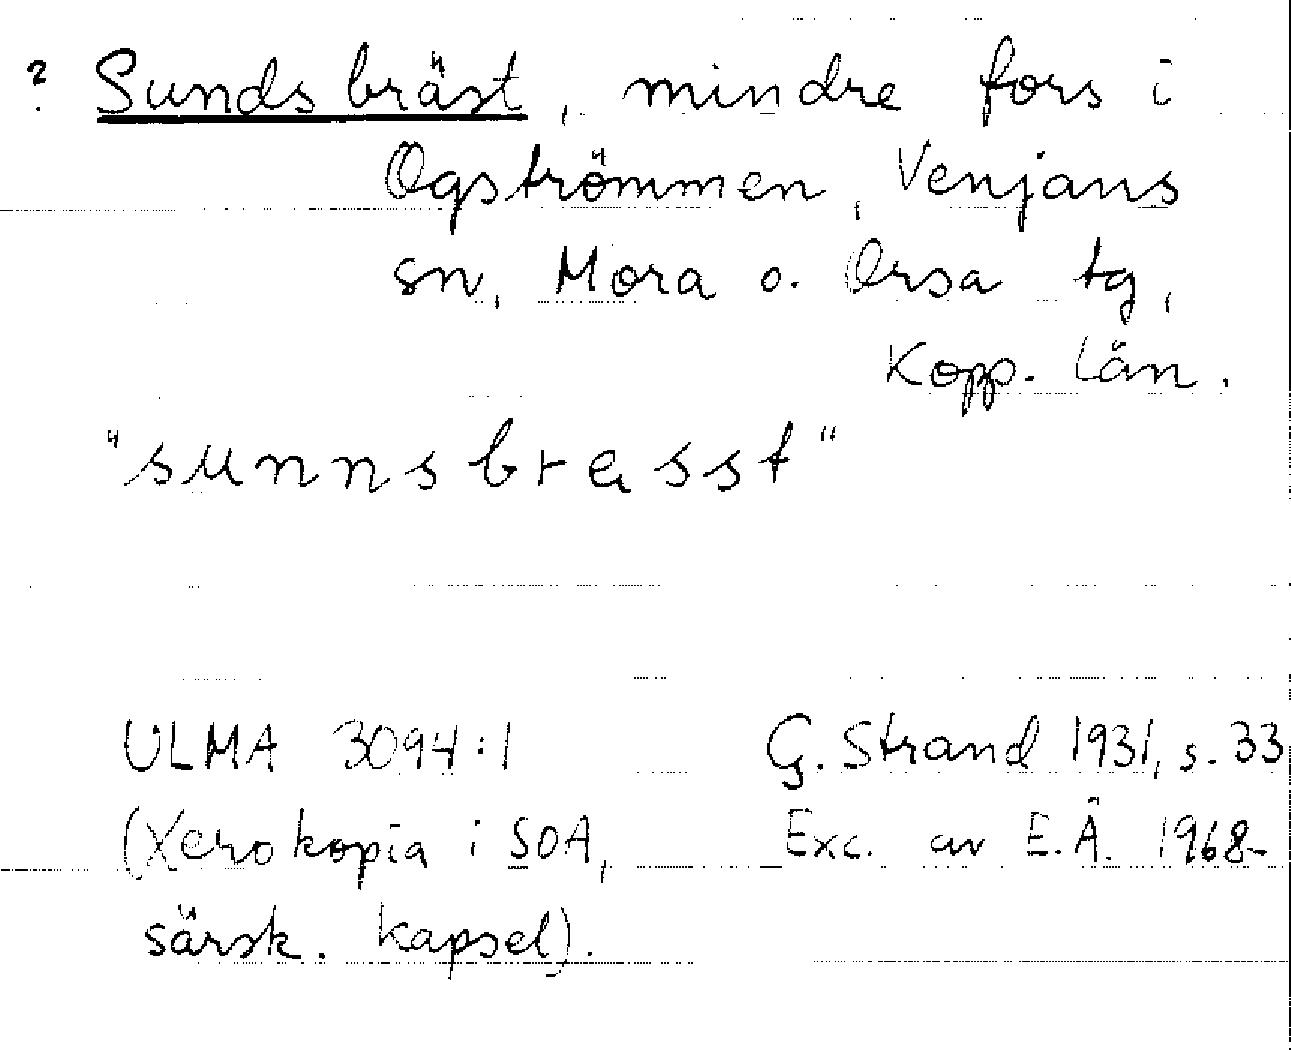 ? Sundsbräst, mindre fors i
Ogströmmen, Venjans
sn, Mora o. Orsa tg,
Kopp. län.
"sunnsbrasst"
ULMA 3094:1 G. Strand 1931, s. 33
(Xerokopia i SOA, Exc. av E.Å. 1968-
särsk. kapsel).